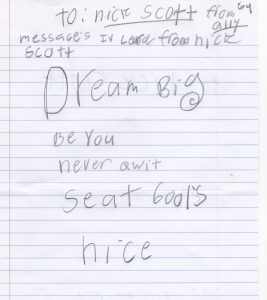 to: nick Scott from
ally
message's Iv Lernd from nick
Scott
Dream Big
Be You
never qwit
Seat Gool's
nice